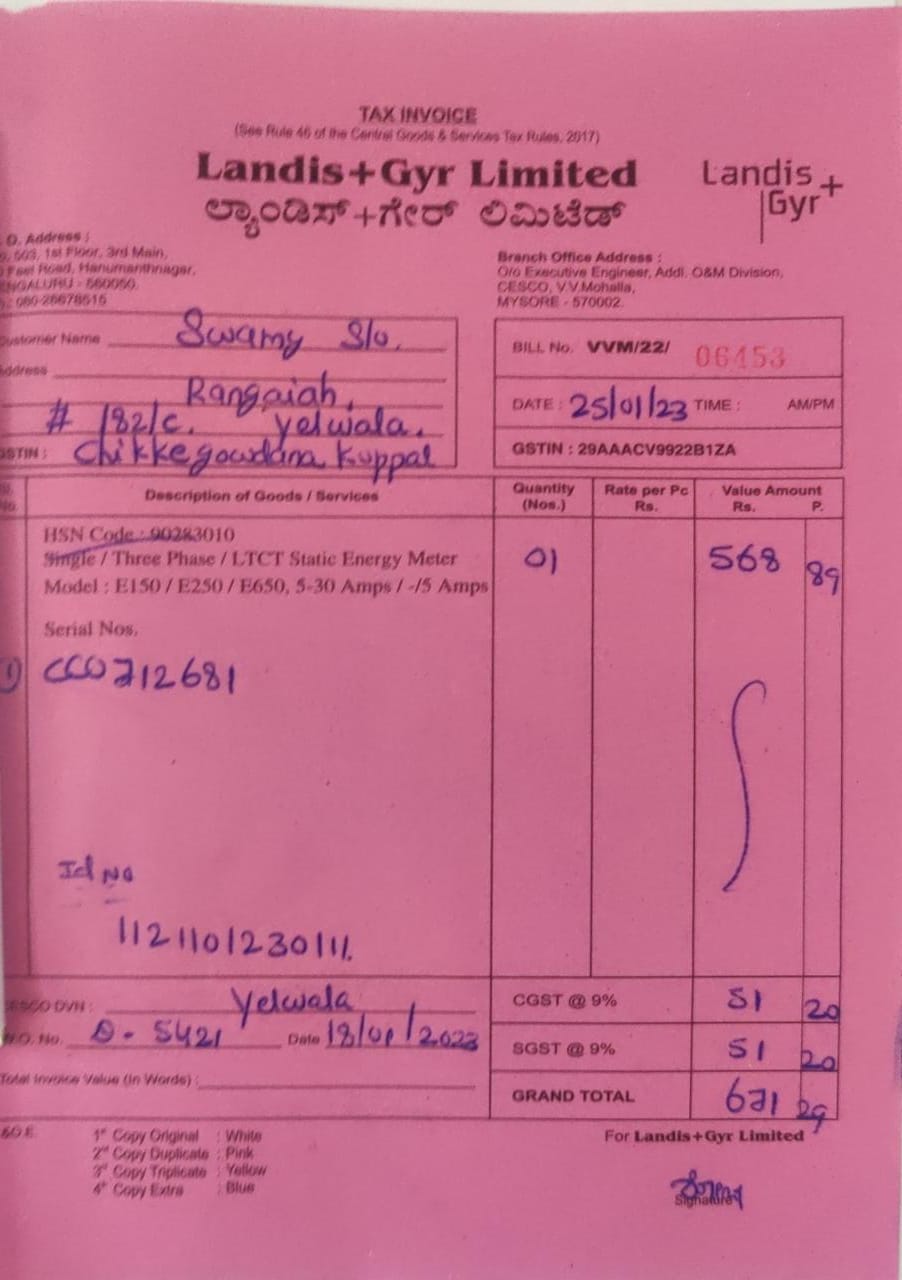 TAX INVOICE
(See Rule 46 of the Central Goods & Services Tax Rules, 2017)
Landis+Gyr Limited
ಲ್ಯಾಂಡಿಸ್+ಗೇರ್ ಲಿಮಿಟೆಡ್
Landis
Gyr+
O. Address :
503, 1st Floor, 3rd Main,
Feet Road, Hanumanthnagar,
NGALURU - 560050.
: 080-26678515
Branch Office Address :
O/o Executive Engineer, Addl. O&M Division,
CESCO, V.V.Mohalla,
MYSORE - 570002.
ustomer Name Swamy S/o.
ddress Rangaiah,
# 182/C. Yelwala.
STIN : Chikkegowdana Koppal
BILL No. VVM/22/ 06453
DATE : 25/01/23 TIME : AM/PM
GSTIN : 29AAACV9922B1ZA
No. Description of Goods / Services Quantity (Nos.) Rate per Pc Rs. Value Amount Rs. P.
HSN Code : 90283010
Single / Three Phase / LTCT Static Energy Meter 01 568 89
Model : E150 / E250 / E650, 5-30 Amps / -/5 Amps
Serial Nos.
1) CCO712681
Id No
1121101230111.
ESCO DVN : Yelwala
.O. No. D- 5421 Date 18/01/2023
Total Invoice Value (In Words) :
CGST @ 9% 51 20
SGST @ 9% 51 20
GRAND TOTAL 671 29
&O.E.
1st Copy Original : White
2nd Copy Duplicate : Pink
3rd Copy Triplicate : Yellow
4th Copy Extra : Blue
For Landis+Gyr Limited
Signature